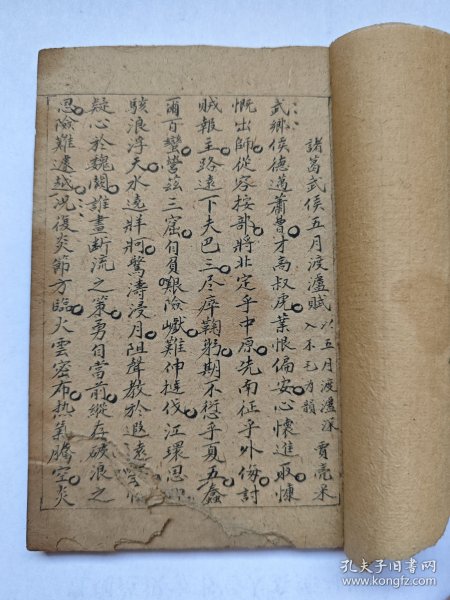 諸葛武侯五月渡瀘賦 以五月渡瀘深入不毛為韻 賈亮采
武鄉侯德邁蕭曹才高叔虎業恨偏安心懷進取慷
慨出師從容按部將北定乎中原先南征乎外侮討
賊報主路遠下夫巴三尽瘁鞠躬期不愆乎夏五蠢
爾百蠻營茲三窟自負艱險巇難伸撻伐江環恩
駭浪浮天水遶牂牁驚濤浸月阻聲教於遐遠
疑心於魏闕誰畫斷流之策勇自當前縱存破浪之
思險難遽越況復炎節方臨火雲密布热氣騰空炎
孔夫子旧書网
www.kongfz.com